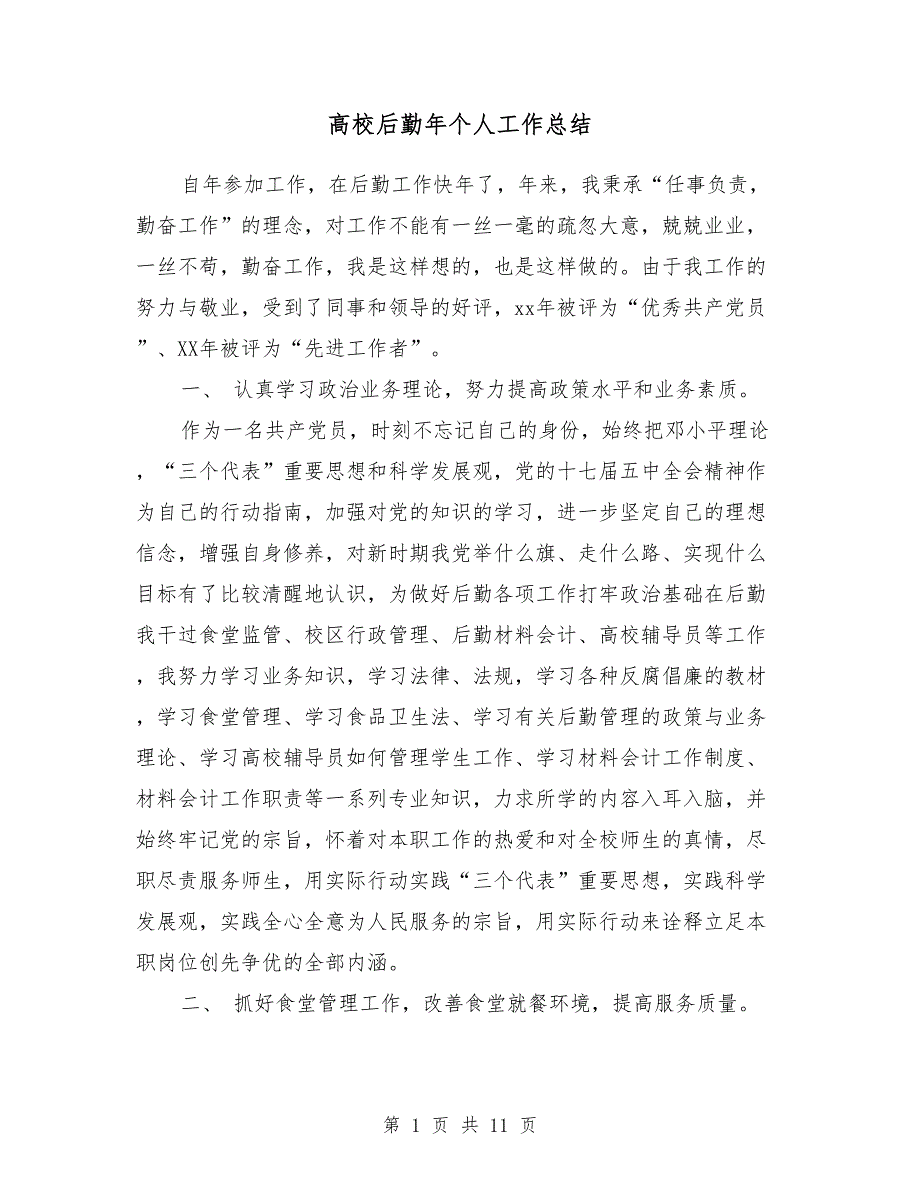 高校后勤年个人工作总结
自年参加工作，在后勤工作快年了，年来，我秉承“任事负责，
勤奋工作”的理念，对工作不能有一丝一毫的疏忽大意，兢兢业业，
一丝不苟，勤奋工作，我是这样想的，也是这样做的。由于我工作的
努力与敬业，受到了同事和领导的好评，xx年被评为“优秀共产党员
”、XX年被评为“先进工作者”。
一、 认真学习政治业务理论，努力提高政策水平和业务素质。
作为一名共产党员，时刻不忘记自己的身份，始终把邓小平理论
，“三个代表”重要思想和科学发展观，党的十七届五中全会精神作
为自己的行动指南，加强对党的知识的学习，进一步坚定自己的理想
信念，增强自身修养，对新时期我党举什么旗、走什么路、实现什么
目标有了比较清醒地认识，为做好后勤各项工作打牢政治基础在后勤
我干过食堂监管、校区行政管理、后勤材料会计、高校辅导员等工作
，我努力学习业务知识，学习法律、法规，学习各种反腐倡廉的教材
，学习食堂管理、学习食品卫生法、学习有关后勤管理的政策与业务
理论、学习高校辅导员如何管理学生工作、学习材料会计工作制度、
材料会计工作职责等一系列专业知识，力求所学的内容入耳入脑，并
始终牢记党的宗旨，怀着对本职工作的热爱和对全校师生的真情，尽
职尽责服务师生，用实际行动实践“三个代表”重要思想，实践科学
发展观，实践全心全意为人民服务的宗旨，用实际行动来诠释立足本
职岗位创先争优的全部内涵。
二、 抓好食堂管理工作，改善食堂就餐环境，提高服务质量。
第 1 页 共 11 页